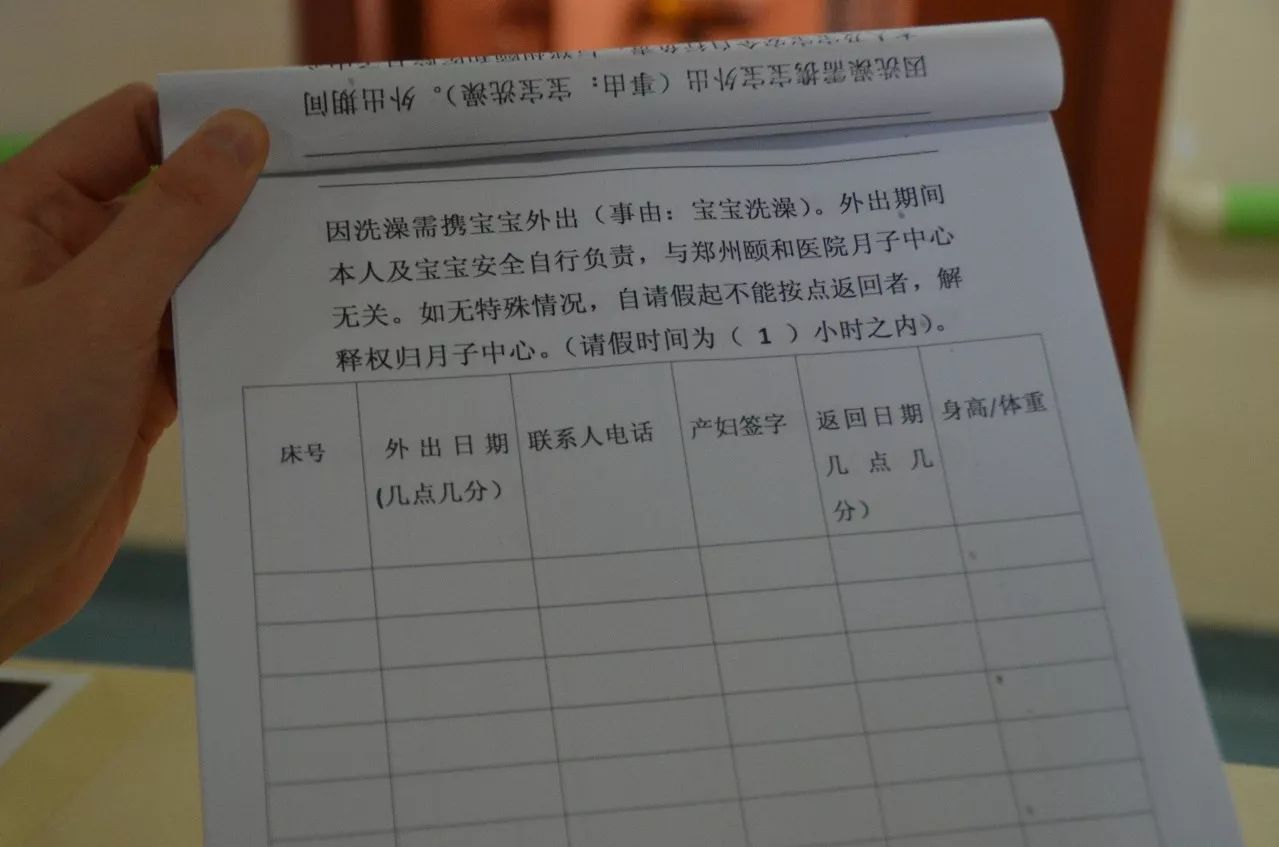 因洗澡需携宝宝外出（事由：宝宝洗澡）。外出期间
因洗澡需携宝宝外出（事由：宝宝洗澡）。外出期间
本人及宝宝安全自行负责，与郑州颐和医院月子中心
无关。如无特殊情况，自请假起不能按点返回者，解
释权归月子中心。（请假时间为（ 1 ）小时之内）。
床号
外出日期
(几点几分）
联系人电话
产妇签字
返回日期
几点几
分）
身高/体重